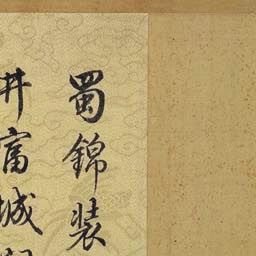 蜀錦裝
井富城